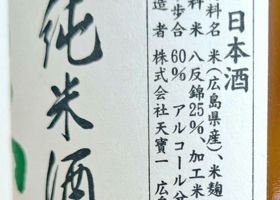 日本酒
料名 米(広島県産)、米麹
料米 八反錦25%、加工米
歩合 60% アルコール分
造者 株式会社天寶一 広
純米酒